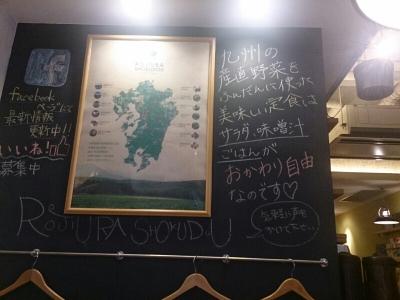 facebook
ページにて
最新情報
更新中!!
いいね!
募集中
ROJIURA
SHOKUDOU
九州の
産直野菜を
ふんだんに使った
美味しい定食は
サラダ、味噌汁
ごはんが
おかわり自由
なのです♡
気軽に声を
かけて下さい
ROJIURA SHOKUDOU